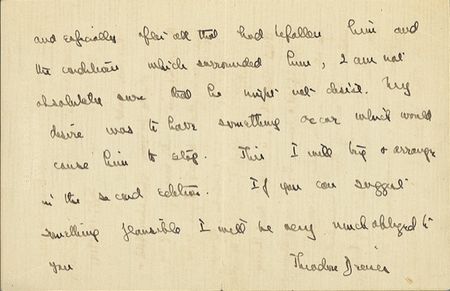 and especially after all that had befallen him and
the conditions which surrounded him, I am not
absolutely sure that he might not desist. My
desire was to have something occur which would
cause him to stop. This I will try & arrange
in the second edition. If you can suggest
something plausible I will be very much obliged to
you
Theodore Dreiser